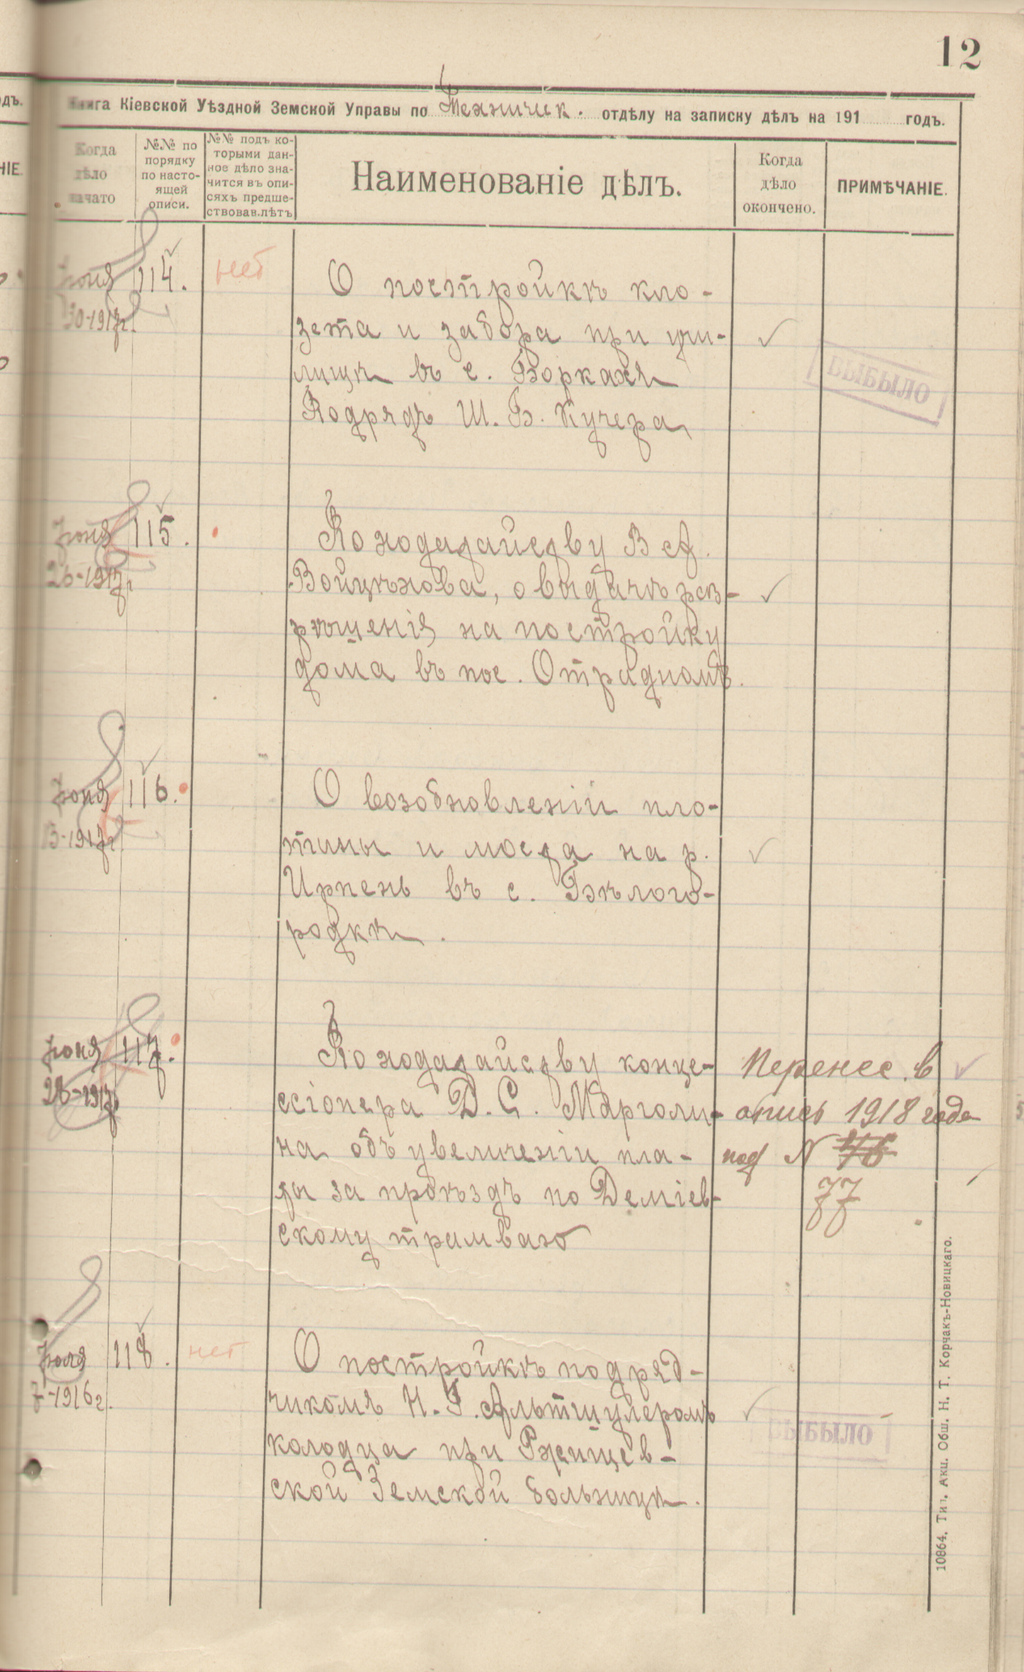 12
Книга Кіевской Уѣздной Земской Управы по Техническ. отдѣлу на записку дѣлъ на 191 годъ.
Когда дѣло начато
№№ по порядку по настоящей описи.
№№ подъ которыми данное дѣло значится въ описяхъ предшествовав. лѣтъ
Наименованіе дѣлъ.
Когда дѣло окончено.
ПРИМѢЧАНІЕ.
Іюня 114. нет О постройкѣ кло-
30-1917г. зета и забора при учи-
лищѣ въ с. Боркахъ
Подрядъ Ш. Б. Кучера
ВЫБЫЛО
Іюня 115. По ходатайству В. А.
26-1917г. Войцѣхова, о выдачѣ раз-
рѣшенія на постройку
дома въ пос. Отрадномъ.
Іюня 116. О возобновленіи пло-
13-1917г. тины и моста на р.
Ирпень въ с. Бѣлого-
родкѣ.
Іюня 117. По ходатайству конце- Перенес. в
28-1917г. ссіонера Д. С. Марголи- опись 1918 года
на объ увеличеніи пла- под N 76
ты за проѣздъ по Деміев- 77
скому трамваю
Іюля 118. нет О постройкѣ подряд-
7-1916г. чикомъ Н. Г. Альтшулеромъ
колодца при Ржищев-
ской Земской больницѣ.
ВЫБЫЛО
10864. Тип. Акц. Общ. Н. Т. Корчакъ-Новицкаго.